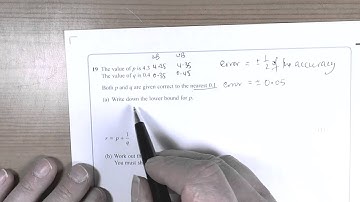 LB UB
19 The value of p is 4.3 4.25 4.35 error = ± 1/2 of the accuracy
The value of q is 0.4 0.35 0.45
Both p and q are given correct to the nearest 0.1 error = ± 0.05
(a) Write down the lower bound for p.
r = p + 1/q
(b) Work out th
You must s